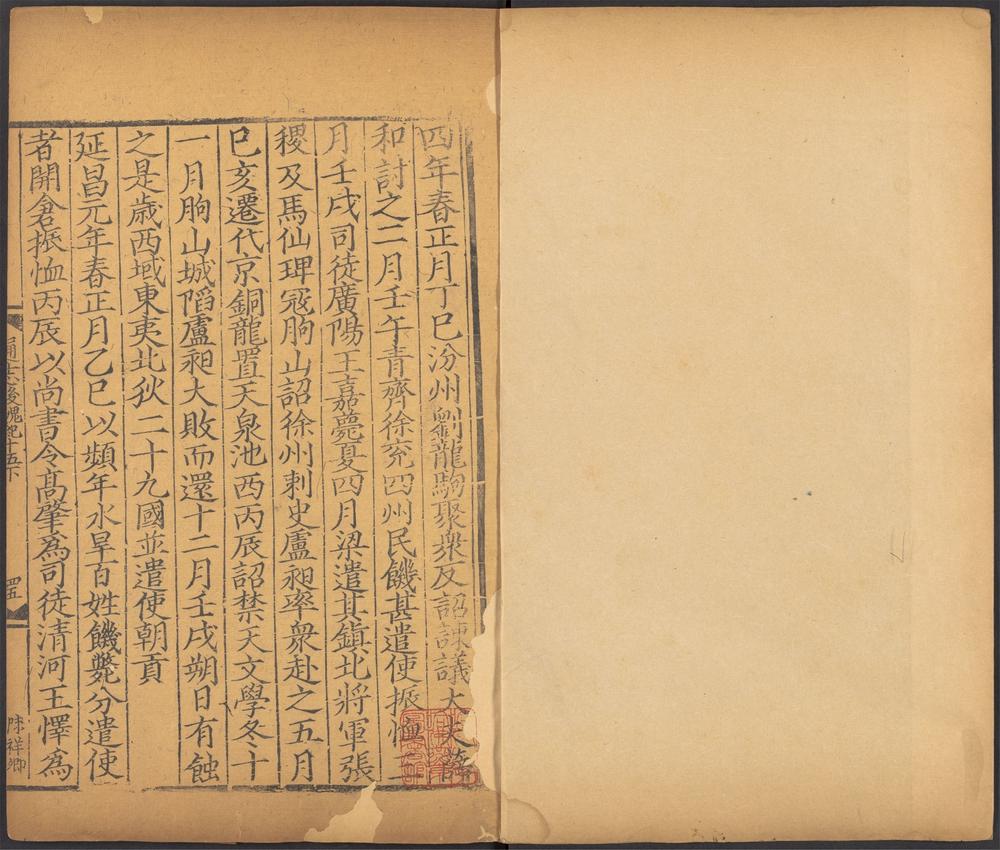 四年春正月丁巳汾州劉龍駒聚衆反詔諫議大夫薛
和討之二月壬午青齊徐兖四州民饑甚遣使振恤三
月壬戌司徒廣陽王嘉薨夏四月梁遣其鎮北將軍張
稷及馬仙琕冦朐山詔徐州刺史盧昶率衆赴之五月
巳亥遷代京銅龍置天泉池西丙辰詔禁天文學冬十
一月朐山城陷盧昶大敗而還十二月壬戌朔日有蝕
之是歳西域東夷北狄二十九國並遣使朝貢
延昌元年春正月乙巳以頻年水旱百姓饑斃分遣使
者開倉振恤丙辰以尚書令髙肇爲司徒清河王懌爲
通志後魏紀十五下
四五
陳祥卿